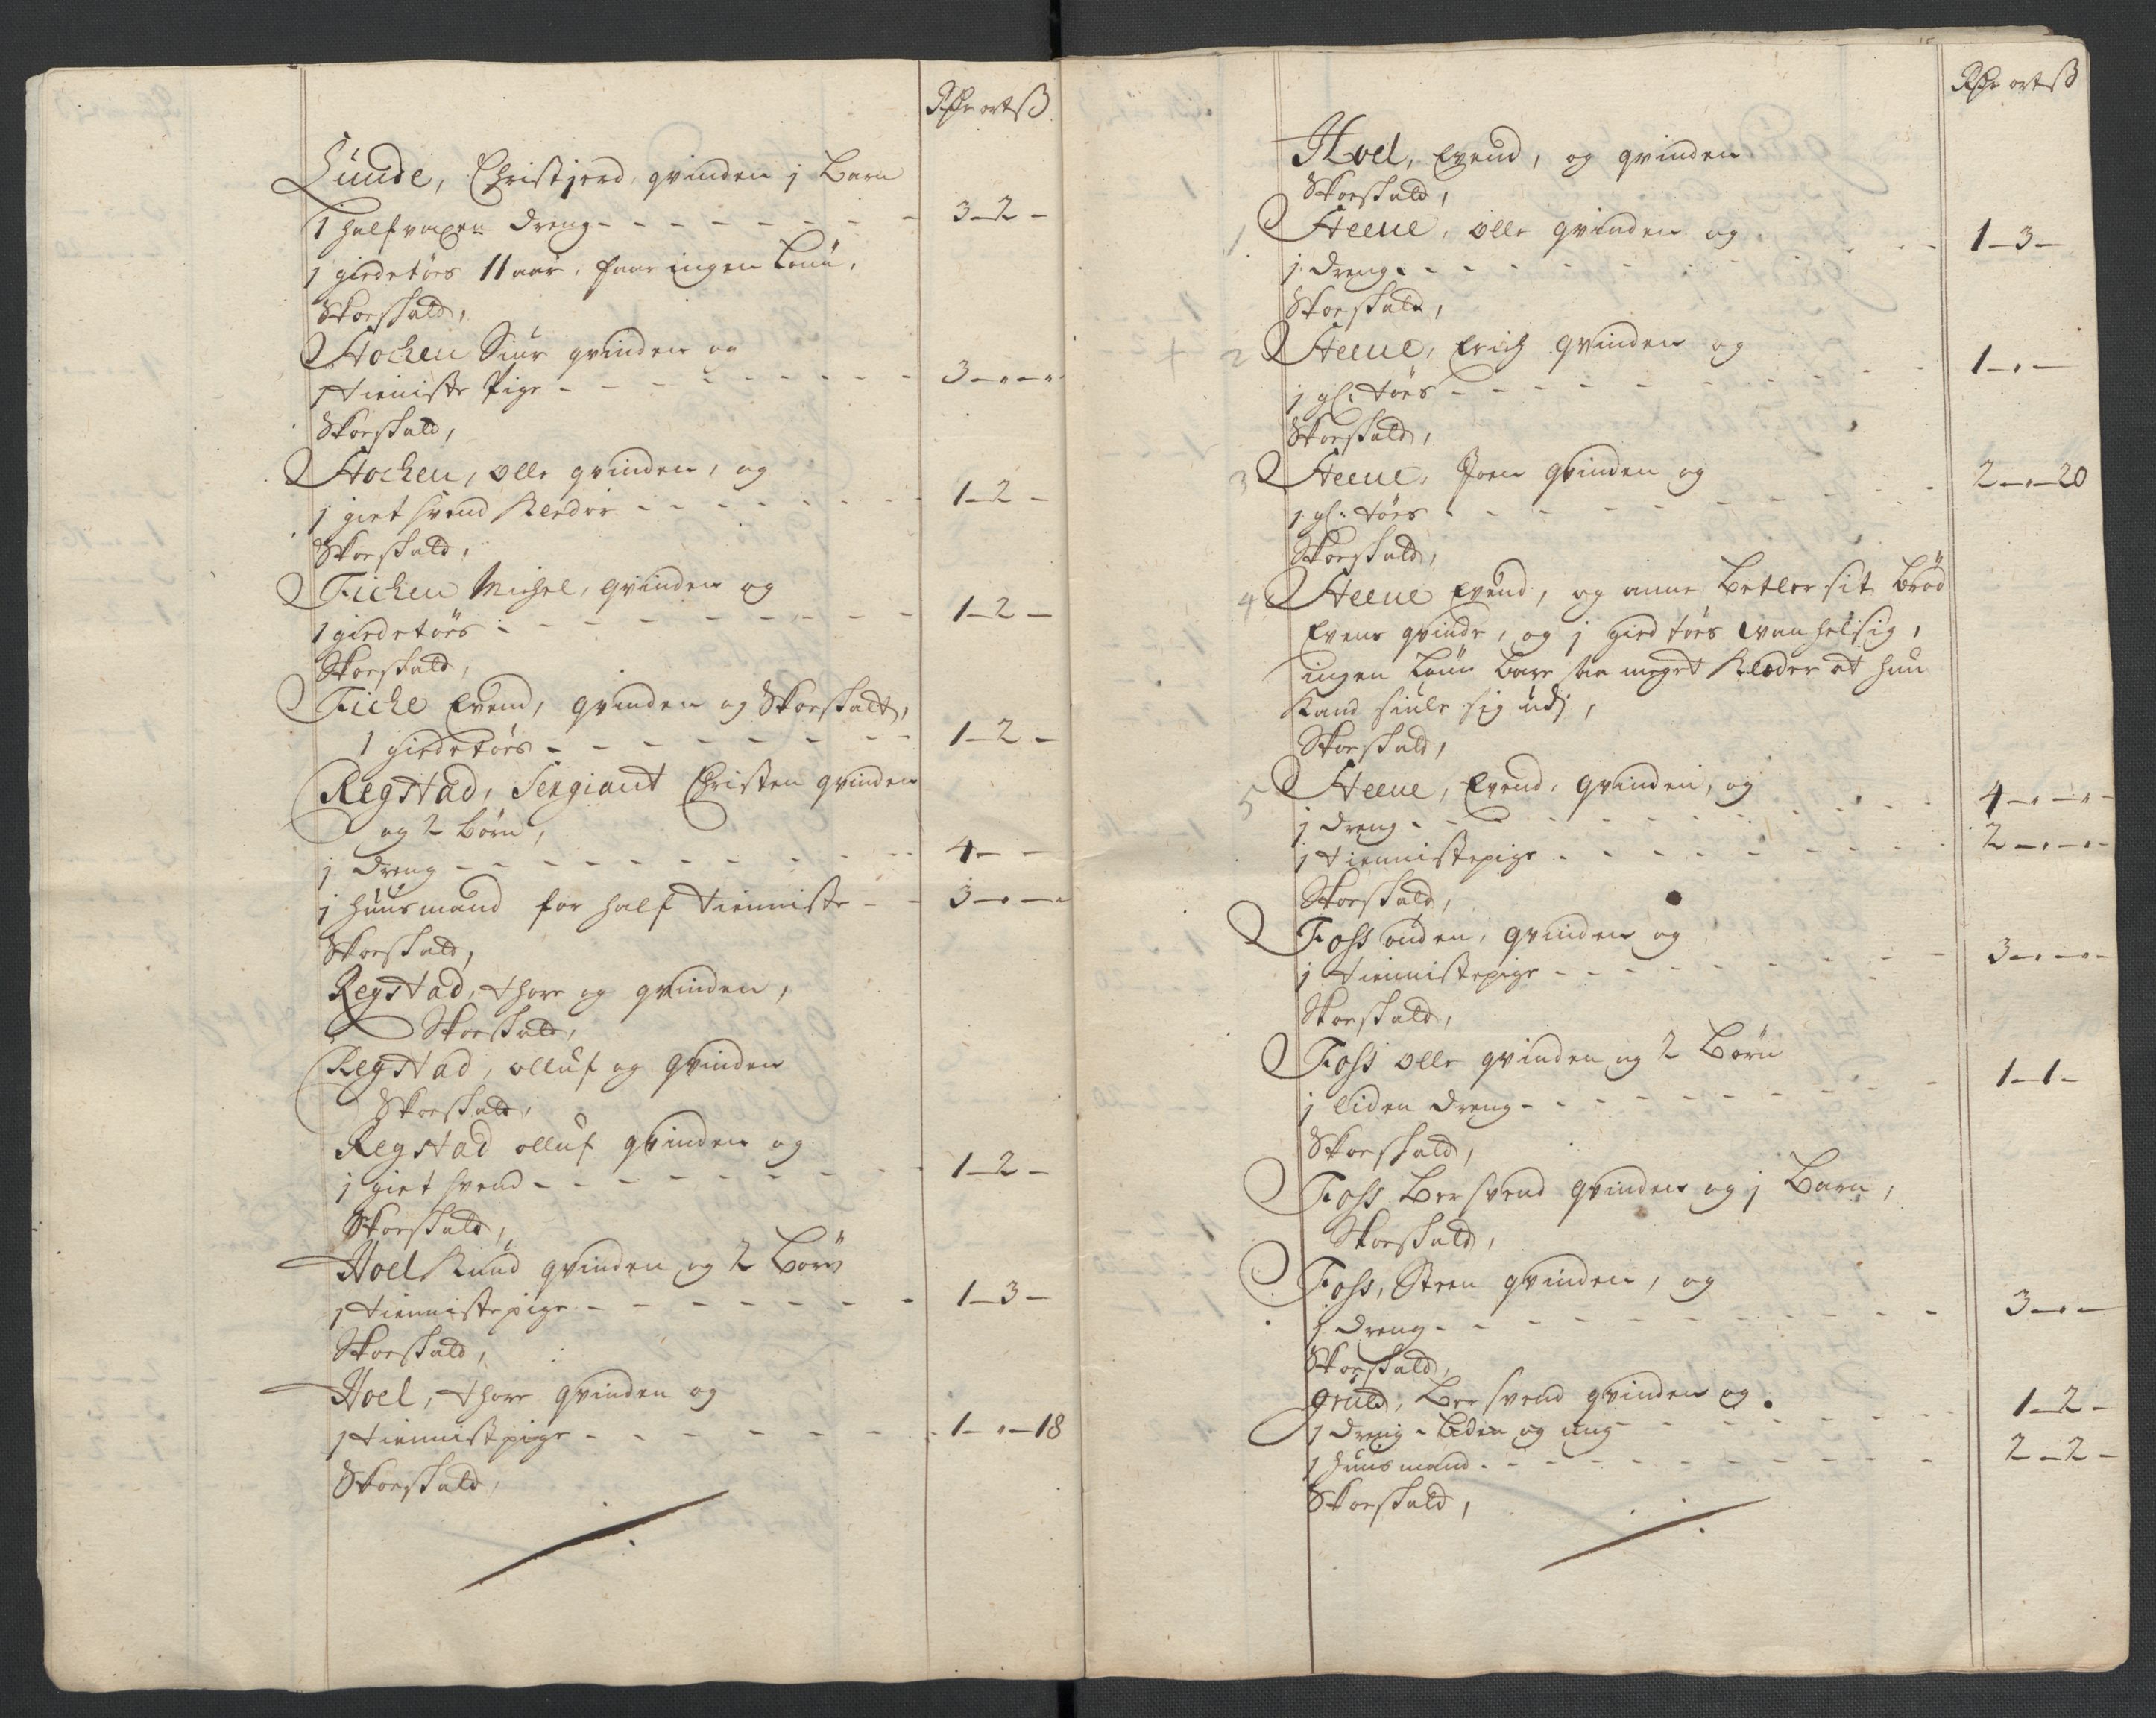 Rdr ort ß
Lunde, Christjerd, qvinden j Barn
1 halfvaxen dreng - - - - - - - 3-2-
j giedetøes 11 aar, faar ingen Lønn,
Skoeskald,
Hochen Siur qvinden og
1 tieniste Pige - - - - - - - - 3-"-"-
Skoeskald,
Hochen, olle qvinden, og
j giet svend Kleder - - - - - - 1-2-
Skoeskald,
Fichen Michel, qvinden og
1 giedetøes - - - - - - - - - 1-2-
Skoeskald,
Fiche Evend, qvinden og Skoeskald,
1 giedetøes - - - - - - - - 1-2-
Regstad, Sergiant Christen qvinden
og 2 børn,
j dreng - - - - - - - - - 4- -
j huusmand for half tienniste - - 3-"-"-
Skoeskald,
Regstad, thore og qvinden,
Skoeskald,
Regstad, olluf og qvinden
Skoeskald,
Regstad olluf qvinden og
j giet svend - - - - - - - - 1-2-
Skoeskald,
Hoel Knud qvinden og 2 Børn
1 tiennistepige - - - - - - - 1-3-
Skoeskald,
Hoel, thore qvinden og
1 tiennistpige - - - - - - - - 1-"-18
Skoeskald,
Rdr ort ß
Hoel, Evend, og qvinden
Skoeskald,
1 Heene, olle qvinden og
j dreng - - - - - - - - 1-3-
Skoeskald,
+ 2 Heene, Erich qvinden og
j gl: tøes - - - - - - - - 1-"-
Skoeskald,
3 Heene, Joen qvinden og
j gl: tøes - - - - - - - - 2-"-20
Skoeskald,
4 Heene Evend, og anne betler sit brød
Evens qvinde, og j gied tøes vanhelsig,
ingen Lønn bare saa meget Kleder at hun
Kand siule sig udj,
Skoeskald,
5 Heene, Evend, qvinden, og
j dreng - - - - - - - - 4-"-"-
j tiennistepige - - - - - - - 2-"-"-
Skoeskald,
Foss anden, qvinden og
j tiennistepige - - - - - - - 3-"-"-
Skoeskald,
Foss olle qvinden og 2 Børn
j liden dreng - - - - - - - 1-1-
Skoeskald,
Foss Bersvend qvinden og j Barn,
Skoeskald,
Foss, Steen qvinden, og
j dreng - - - - - - - - - 3-"-
Skoeskald,
Bersvend qvinden og
1 dreng - liden og ung - - - - - - 1-2-
1 huusmand - - - - - - - - 2-2-
Skoeskald,